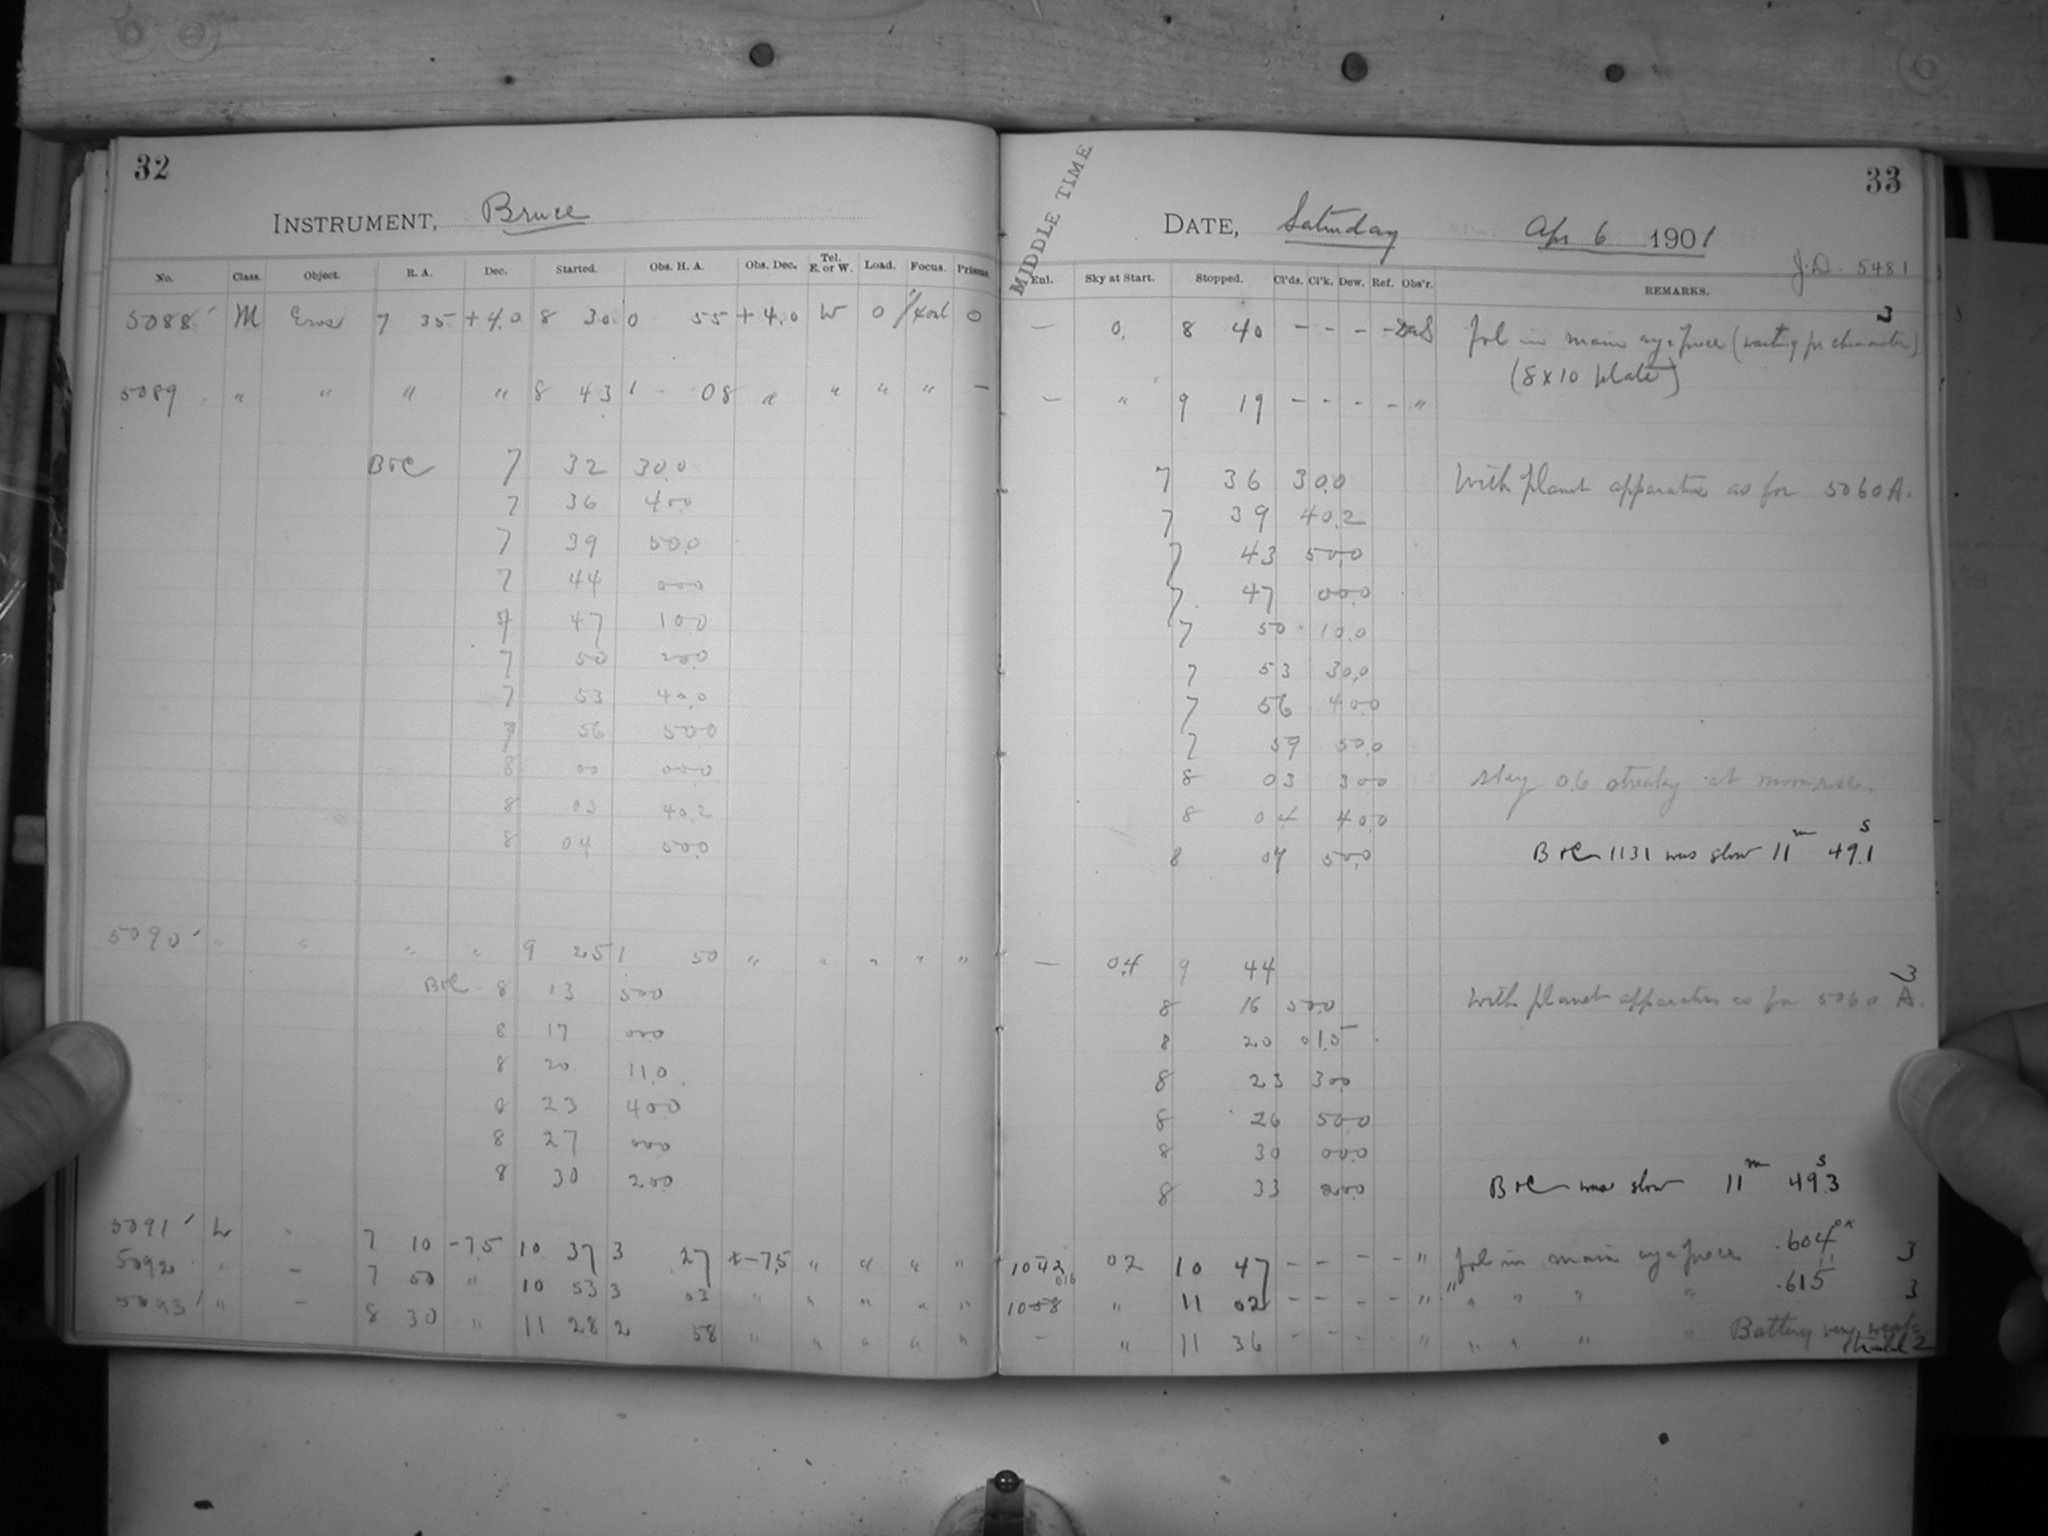 32
INSTRUMENT, Bruce
No. Class. Object. R. A. Dec. Started. Obs. H. A. Obs. Dec. Tel. E. or W. Load. Focus. Prisms
5088 M Eros 7 35 +4.0 8 30 0 55 +4.0 W 0 0
5089 " " " " 8 43 1 08 " " " " -
B&C 7 32 30.0
7 36 40.0
7 39 50.0
7 44 00.0
7 47 10.0
7 50 20.0
7 53 40.0
7 56 50.0
8 00 00.0
8 03 40.2
8 04 50.0
5090 " " " " 9 25 1 50 " " " " "
B&C 8 13 50.0
8 17 00.0
8 20 11.0
8 23 40.0
8 27 00.0
8 30 20.0
5091 L - 7 10 -7.5 10 37 3 27 -7.5 " " " "
5092 " - 7 50 " 10 53 3 03 " " " " "
5093 " - 8 30 " 11 28 2 58 " " " " "
MIDDLE TIME
33
DATE, Saturday Apr 6 1901
J.D. 5481
Enl. Sky at Start. Stopped. Cl'ds. Cl'k. Dew. Ref. Obs'r. REMARKS.
— 0. 8 40 - - - - fol in main eyepiece (waiting for chronometer) 3
(8 x 10 plate)
— " 9 19 - - - - "
7 36 30.0 With planet apparatus as for 5060 A.
7 39 40.2
7 43 50.0
7 47 00.0
7 50 10.0
7 53 30.0
7 56 40.0
7 59 50.0
8 03 30.0 sky 0.6 streaky at moonrise.
8 04 40.0
8 07 50.0 B&C 1131 was slow 11m 49.1s
— 0.4 9 44 3
8 16 50.0 With planet apparatus as for 5060 A.
8 20 01.5
8 23 30.0
8 26 50.0
8 30 00.0
8 33 20.0 B&C was slow 11m 49.3s
1042 02 10 47 - - - - " fol in main eyepiece .604 3
1058 " 11 02 - - - - " " " " " .615 3
- " 11 36 - - - - " " " " " Battery very weak
2